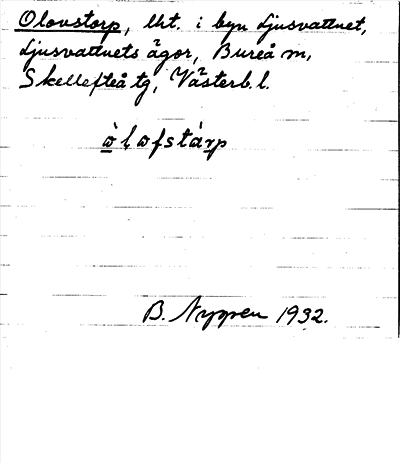 Olovstorp, lht. i byn Ljusvattnet,
Ljusvattnets ägor, Bureå sn,
Skellefteå tg, Västerb. l.
ὼlofstàrp
B. Nygren 1932.